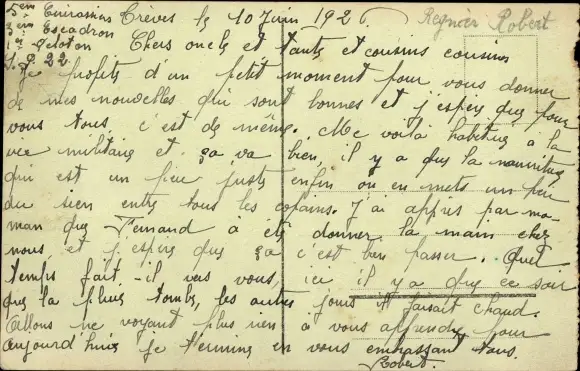 5ème Cuirassiers Trèves le 10 Juin 1926 Regnier Robert
3ème Escadron
1er Peloton Chers oncle et tante et cousins cousines
S.P. 22
Je profite d'un petit moment pour vous donner
de mes nouvelles qui sont bonnes et j'espère que pour
vous tous c'est de même. Me voilà habitué à la
vie militaire et ça va bien, il y a que la nourriture
qui est un peu juste enfin on en mets un peu
du sien entre tous les copains. J'ai appris par ma-
man que Fernand a été donner la main chez
nous, et j'espère que ça c'est bien passer. Quel
temps fait-il vers vous, ici il y a que ce soir
que la pluie tombe, les autres jours il faisait chaud.
Allons ne voyant plus rien à vous apprendre pour
aujourd'hui je termine en vous embrassant tous.
Robert.